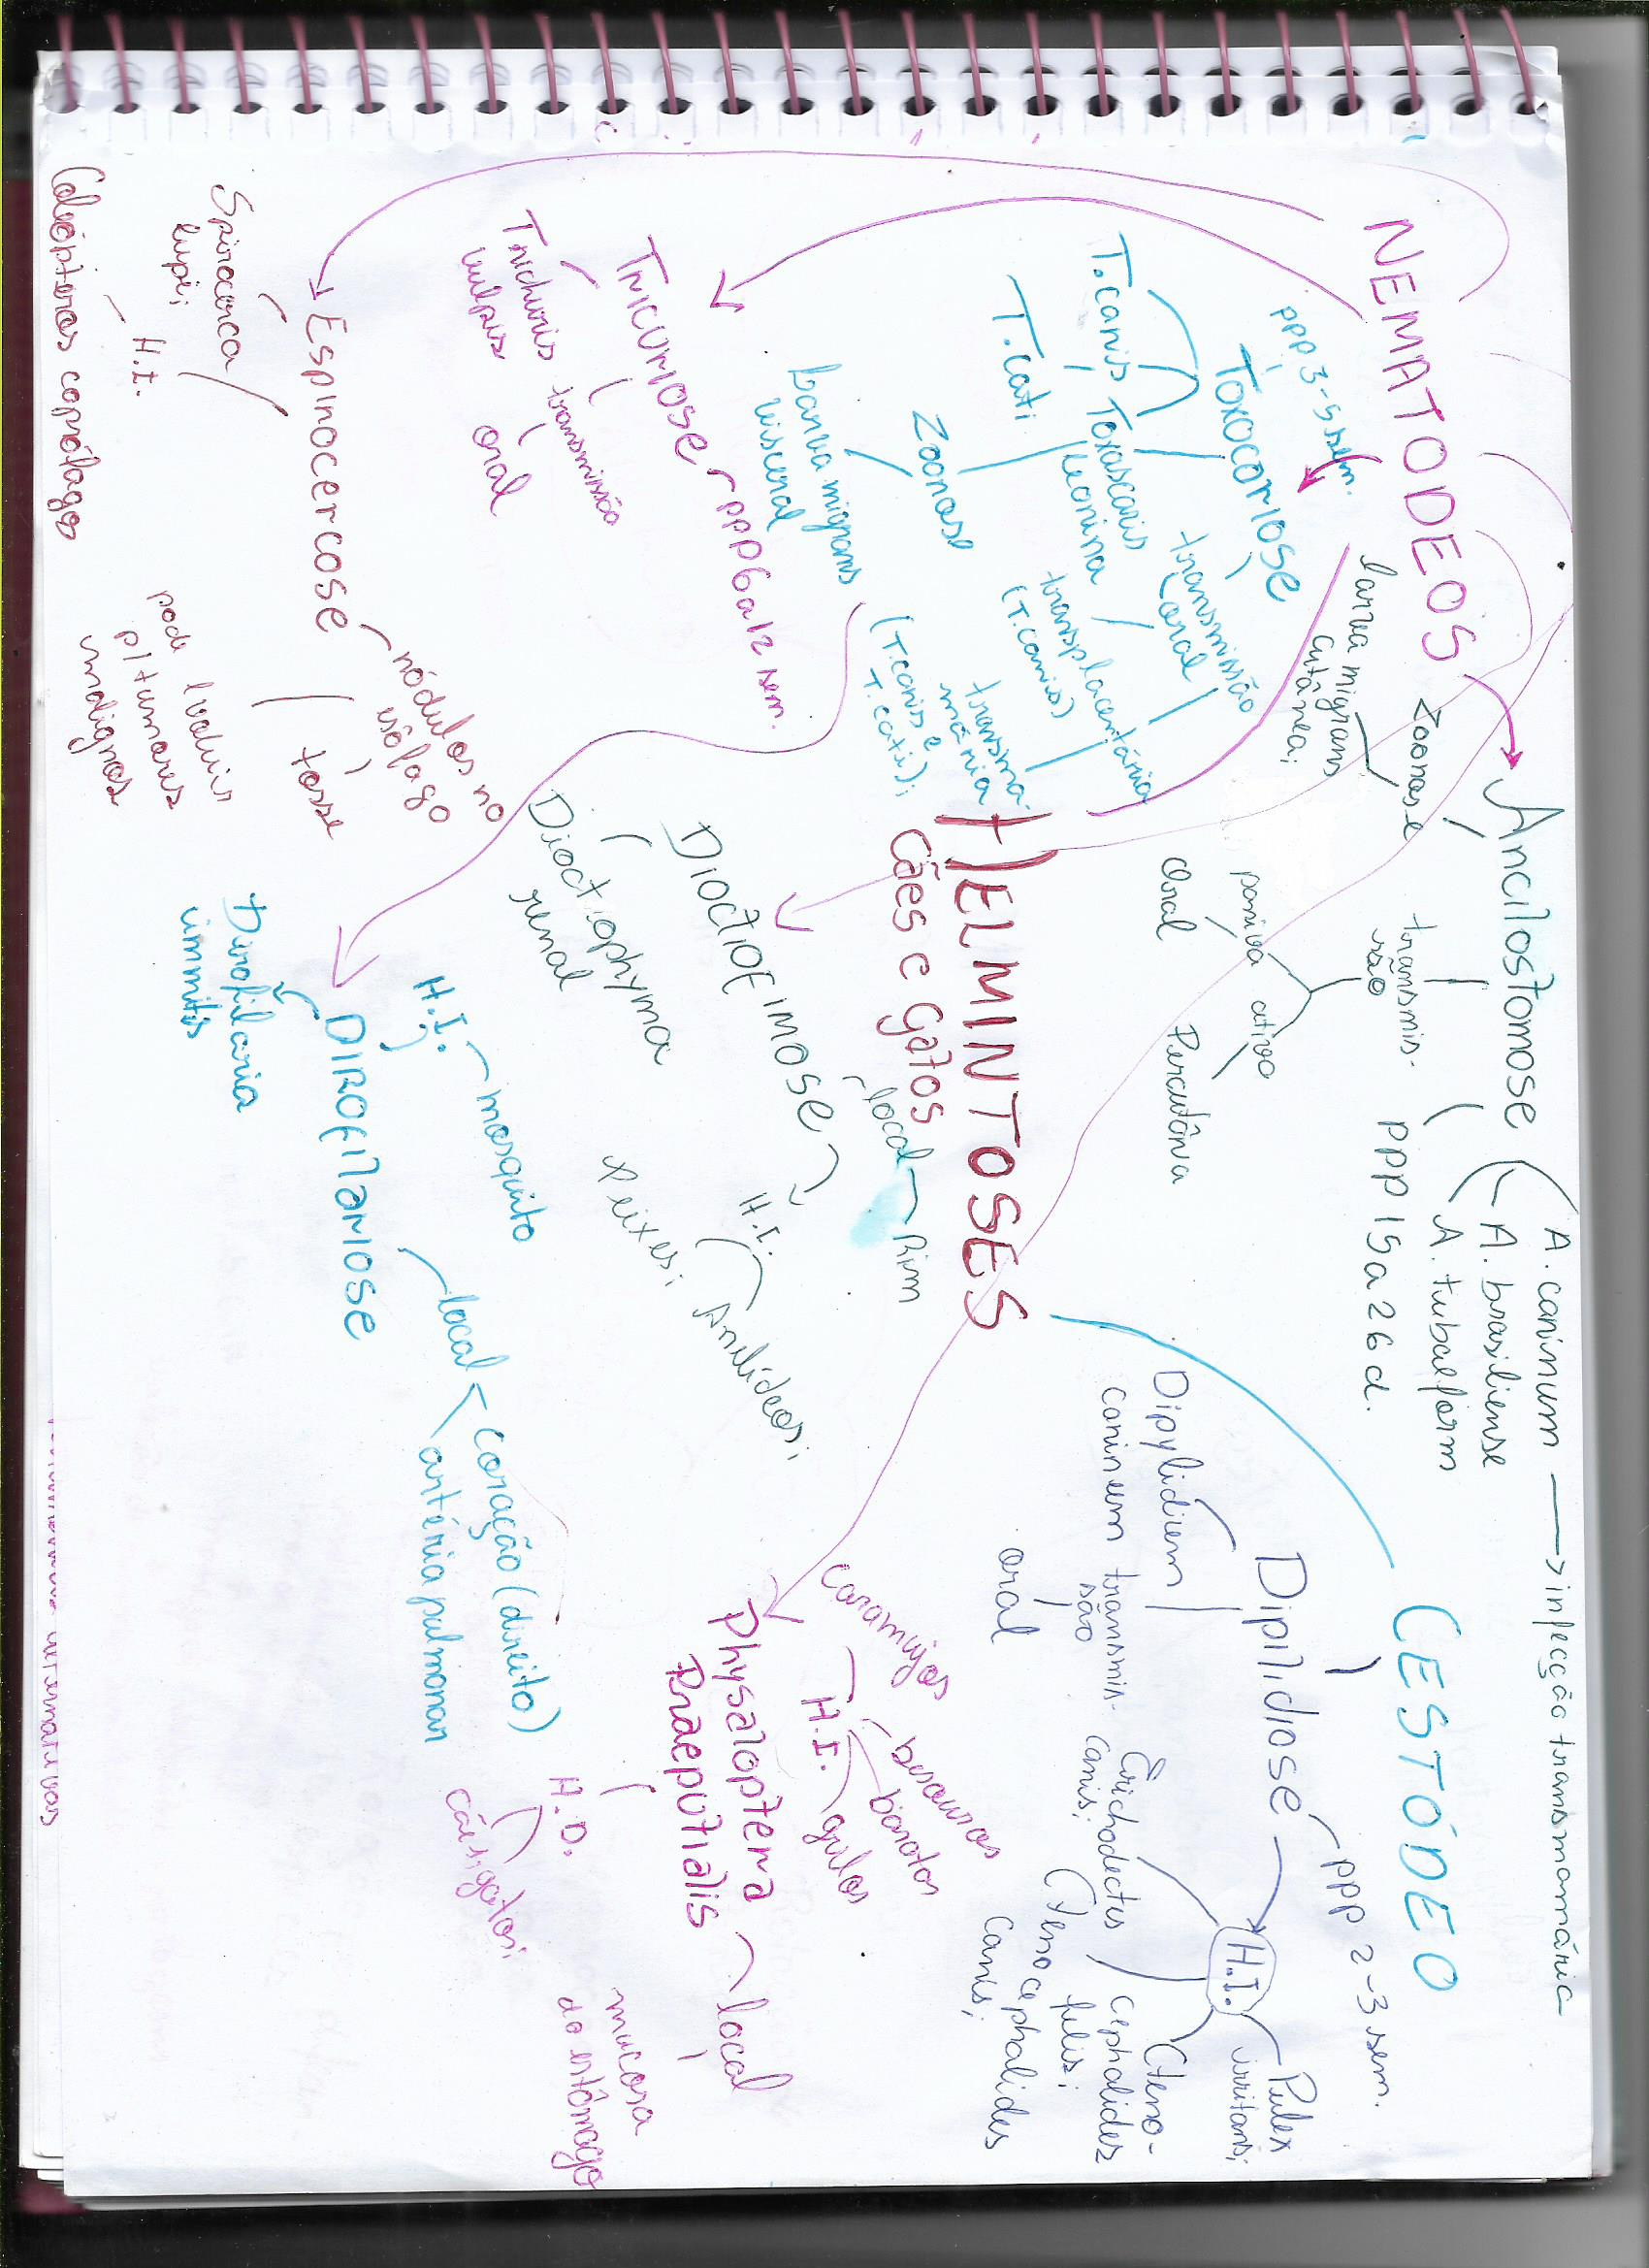 HELMINTOSES
Cães e Gatos
NEMATODEOS
Ancilostomose
A. caninum → infecção transmamária
A. brasiliense
A. tubaeform
ppp 15 a 26 d.
transmis-
são
passiva
oral
ativo
Percutânea
Zoonose
larva migrans
cutânea;
Toxocariose
ppp 3-5 sem.
T. canis
T. cati
Toxascaris
leonina
transmissão
oral
transplacentária
(T. canis)
transma-
mária
(T. canis e
T. cati);
Zoonose
Larva migrans
visceral
Tricuriose
ppp 6 a 12 sem.
Trichuris
vulpis
transmissão
oral
Espinocercose
Spirocerca
lupi;
H.I.
Coleópteros coprófagos
nódulos no
esôfago
tosse
pode evoluir
p/ tumores
malignos
Dioctofimose
Dioctophyma
renal
local
Rim
H.I.
Anelídeos;
Peixes;
Dirofilariose
Dirofilaria
immitis
H.I.
mosquito
local
coração (direito)
artéria pulmonar
Physaloptera
Praeputialis
H.I.
caramujos
besouros
baratas
grilos
H.D.
cães; gatos;
local
mucosa
do estômago
CESTÓDEO
Dipilidiose
ppp 2-3 sem.
Dipylidium
caninum
transmis-
são
oral
H.I.
Pulex
irritans;
Cteno-
cephalides
felis;
Ctenocephalides
canis;
Trichodectes
canis;